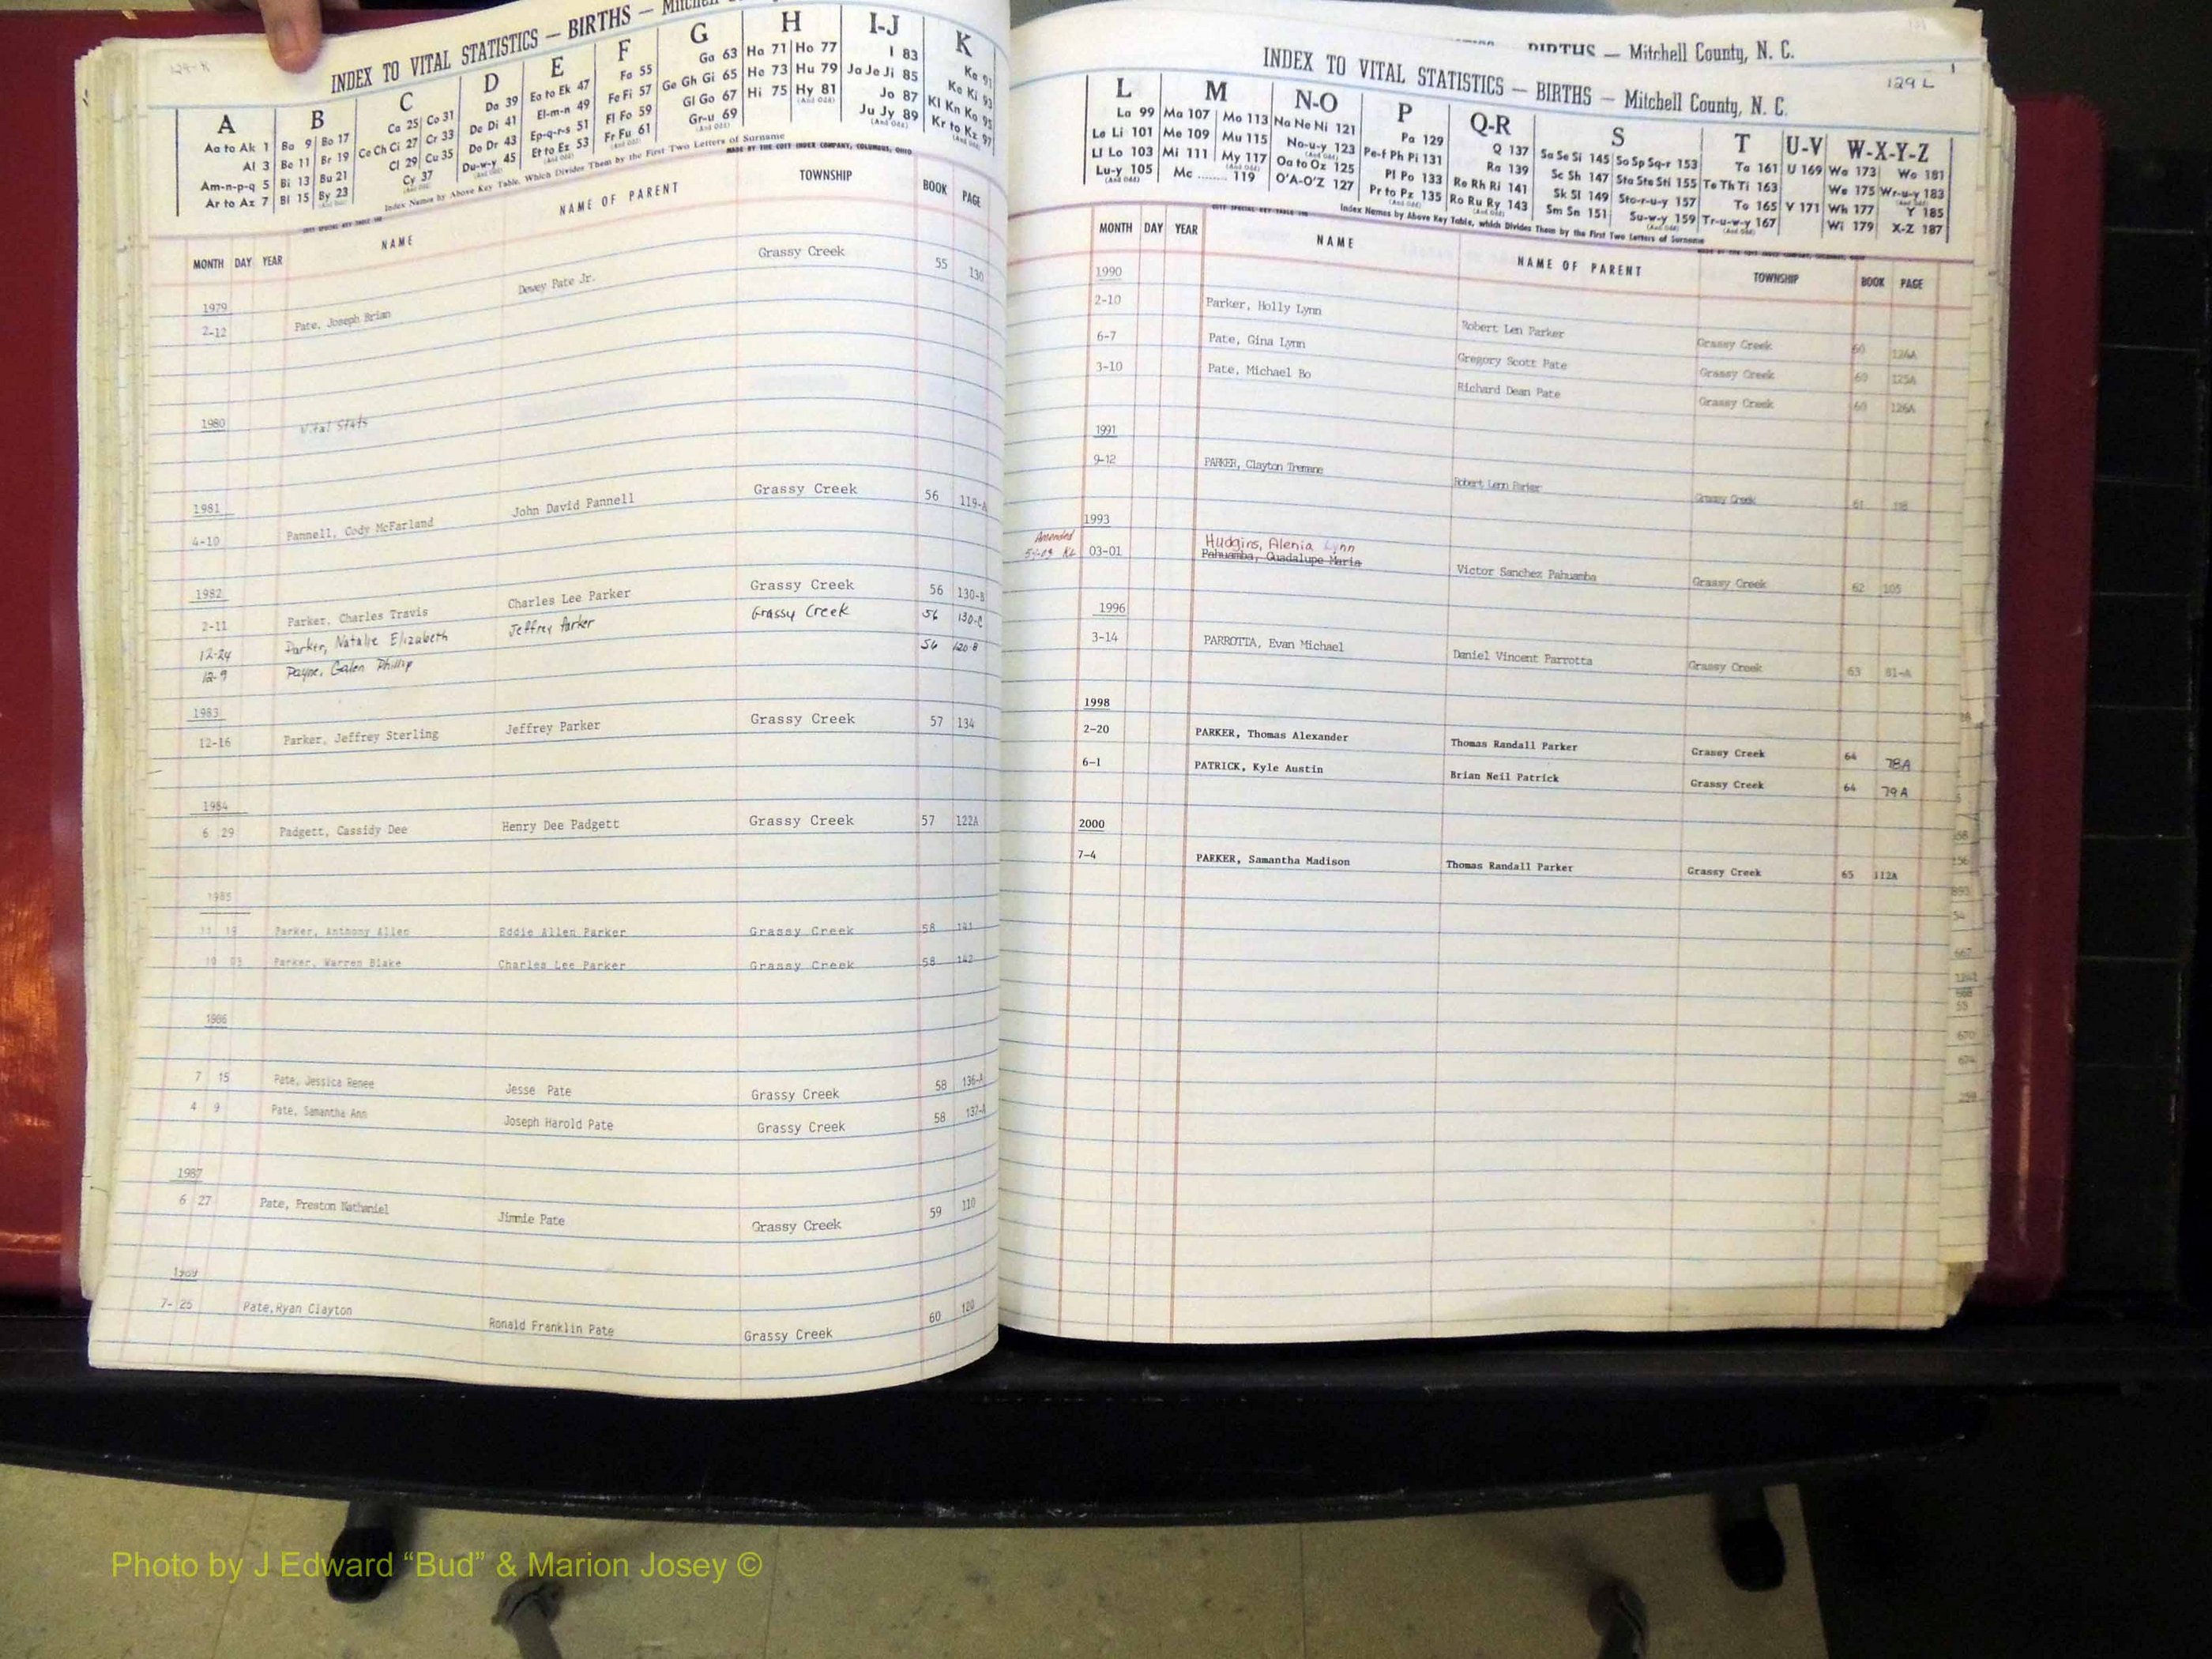 129-K
INDEX TO VITAL STATISTICS — BIRTHS —
A B C D E F G H I-J K
Aa to Ak 1 Ba 9 Bo 17 Ca 25 Co 31 Da 39 Ea to Ek 47 Fa 55 Ga 63 Ha 71 Ho 77 I 83 Ka 91
Al 3 Be 11 Br 19 Ce Ch Ci 27 Cr 33 De Di 41 El-m-n 49 Fe Fi 57 Ge Gh Gi 65 He 73 Hu 79 Ja Je Ji 85 Ke Ki 93
Am-n-p-q 5 Bi 13 Bu 21 Cl 29 Cu 35 Do Dr 43 Ep-q-r-s 51 Fl Fo 59 Gl Go 67 Hi 75 Hy 81 Jo 87 Kl Kn Ko 95
Ar to Az 7 Bl 15 By 23 Cy 37 Du-w-y 45 Et to Ez 53 Fr Fu 61 Gr-u 69 Ju Jy 89 Kr to Kz 97
Index Names by Above Key Table, Which Divides Them by the First Two Letters of Surname
MADE BY THE COTT INDEX COMPANY, COLUMBUS, OHIO
MONTH DAY YEAR NAME NAME OF PARENT TOWNSHIP BOOK PAGE
1979
2-12 Pate, Joseph Brian Dewey Pate Jr. Grassy Creek 55 130
1980 Vital Stats
1981
4-10 Pannell, Cody McFarland John David Pannell Grassy Creek 56 119-A
1982
2-11 Parker, Charles Travis Charles Lee Parker Grassy Creek 56 130-B
12-24 Parker, Natalie Elizabeth Jeffrey Parker Grassy Creek 56 130-C
12-9 Payne, Galen Phillip 56 120-B
1983
12-16 Parker, Jeffrey Sterling Jeffrey Parker Grassy Creek 57 134
1984
6 29 Padgett, Cassidy Dee Henry Dee Padgett Grassy Creek 57 122A
1985
11 18 Parker, Anthony Allen Eddie Allen Parker Grassy Creek 58 141
10 03 Parker, Warren Blake Charles Lee Parker Grassy Creek 58 142
1986
7 15 Pate, Jessica Renee Jesse Pate Grassy Creek 58 136-A
4 9 Pate, Samantha Ann Joseph Harold Pate Grassy Creek 58 137-A
1987
6 27 Pate, Preston Nathaniel Jimmie Pate Grassy Creek 59 110
1989
7-25 Pate,Ryan Clayton Ronald Franklin Pate Grassy Creek 60 120
BIRTHS — Mitchell County, N. C.
INDEX TO VITAL STATISTICS — BIRTHS — Mitchell County, N. C.
129 L
L M N-O P Q-R S T U-V W-X-Y-Z
La 99 Ma 107 Mo 113 Na Ne Ni 121 Pa 129 Q 137 Sa Se Si 145 So Sp Sq-r 153 Ta 161 U 169 Wa 173 Wo 181
Le Li 101 Me 109 Mu 115 No-u-y 123 Pe-f Ph Pi 131 Ra 139 Sc Sh 147 Sta Ste Sti 155 Te Th Ti 163 We 175 Wr-u-y 183
Ll Lo 103 Mi 111 My 117 Oa to Oz 125 Pl Po 133 Re Rh Ri 141 Sk Sl 149 Sto-r-u-y 157 To 165 V 171 Wh 177 Y 185
Lu-y 105 Mc 119 O'A-O'Z 127 Pr to Pz 135 Ro Ru Ry 143 Sm Sn 151 Su-w-y 159 Tr-u-w-y 167 Wi 179 X-Z 187
Index Names by Above Key Table, which Divides Them by the First Two Letters of Surname
MONTH DAY YEAR NAME NAME OF PARENT TOWNSHIP BOOK PAGE
1990
2-10 Parker, Holly Lynn Robert Len Parker Grassy Creek 60 124A
6-7 Pate, Gina Lynn Gregory Scott Pate Grassy Creek 60 125A
3-10 Pate, Michael Bo Richard Dean Pate Grassy Creek 60 126A
1991
9-12 PARKER, Clayton Tremane Robert Lenn Parker Grassy Creek 61 118
1993
Amended Hudgins, Alenia Lynn
03-01 Pahuamba, Guadalupe Maria Victor Sanchez Pahuamba Grassy Creek 62 105
1996
3-14 PARROTTA, Evan Michael Daniel Vincent Parrotta Grassy Creek 63 81-A
1998
2-20 PARKER, Thomas Alexander Thomas Randall Parker Grassy Creek 64 78A
6-1 PATRICK, Kyle Austin Brian Neil Patrick Grassy Creek 64 79A
2000
7-4 PARKER, Samantha Madison Thomas Randall Parker Grassy Creek 65 112A
Photo by J Edward “Bud” & Marion Josey ©